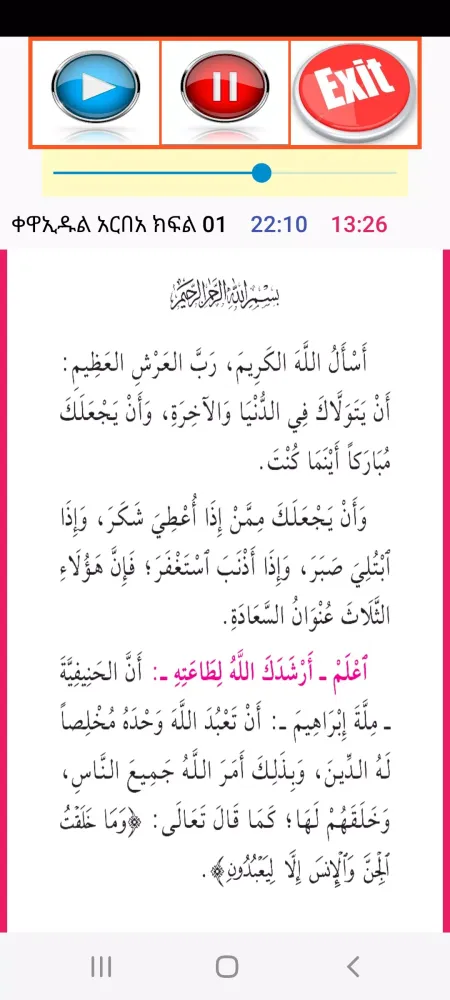 Exit
ቀዋኢዱል አርበአ ክፍል 01 22:10 13:26
بِسْمِ اللَّهِ الرَّحْمَنِ الرَّحِيمِ
أَسْأَلُ اللَّهَ الكَرِيمَ، رَبَّ العَرْشِ العَظِيمِ:
أَنْ يَتَوَلَّاكَ فِي الدُّنْيَا وَالآخِرَةِ، وَأَنْ يَجْعَلَكَ
مُبَارَكاً أَيْنَمَا كُنْتَ.
وَأَنْ يَجْعَلَكَ مِمَّنْ إِذَا أُعْطِيَ شَكَرَ، وَإِذَا
ٱبْتُلِيَ صَبَرَ، وَإِذَا أَذْنَبَ ٱسْتَغْفَرَ؛ فَإِنَّ هَؤُلَاءِ
الثَّلَاثَ عُنْوَانُ السَّعَادَةِ.
ٱعْلَمْ ـ أَرْشَدَكَ اللَّهُ لِطَاعَتِهِ ـ: أَنَّ الحَنِيفِيَّةَ
ـ مِلَّةَ إِبْرَاهِيمَ ـ: أَنْ تَعْبُدَ اللَّهَ وَحْدَهُ مُخْلِصاً
لَهُ الدِّينَ، وَبِذَلِكَ أَمَرَ اللَّهُ جَمِيعَ النَّاسِ،
وَخَلَقَهُمْ لَهَا؛ كَمَا قَالَ تَعَالَى: ﴿وَمَا خَلَقْتُ
ٱلْجِنَّ وَٱلْإِنسَ إِلَّا لِيَعْبُدُونِ﴾.